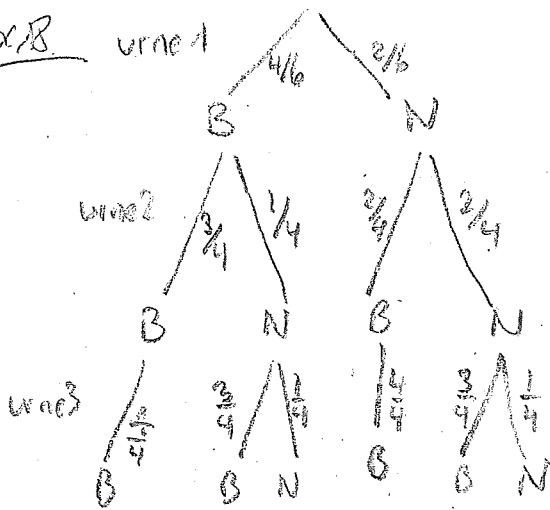 urne 1
4/6 2/6
B N
urne2
3/4 1/4 2/4 2/4
B N B N
urne3
4/4 3/4 1/4 4/4 3/4 1/4
B B N B B N